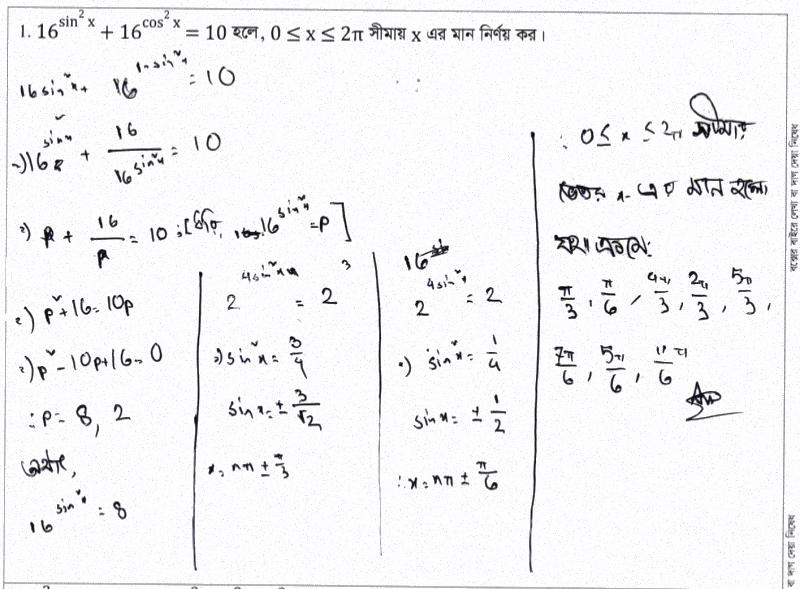 1. 16^sin²x + 16^cos²x = 10 হলে, 0 ≤ x ≤ 2π সীমায় x এর মান নির্ণয় কর।
16^sin²x + 16^1-sin²x = 10
⇒ 16^sin²x + 16/16^sin²x = 10
⇒ p + 16/p = 10 ; [ধরি, 16^sin²x = p]
⇒ p² + 16 = 10p
⇒ p² - 10p + 16 = 0
∴ p = 8, 2
অর্থাৎ,
16^sin²x = 8
2^4sin²x = 2^3
⇒ sin²x = 3/4
sin x = ± 3/√2
x = nπ ± π/3
2^4sin²x = 2
⇒ sin²x = 1/4
sin x = ± 1/2
∴ x = nπ ± π/6
∴ 0 ≤ x ≤ 2π সীমার
ভিতর x এর মান হলো
যথাক্রমে:
π/3, π/6, 4π/3, 2π/3, 5π/3,
7π/6, 5π/6, 11π/6
Ans
বক্সের বাইরে লেখা বা দাগ দেয়া নিষেধ
বা দাগ দেয়া নিষেধ